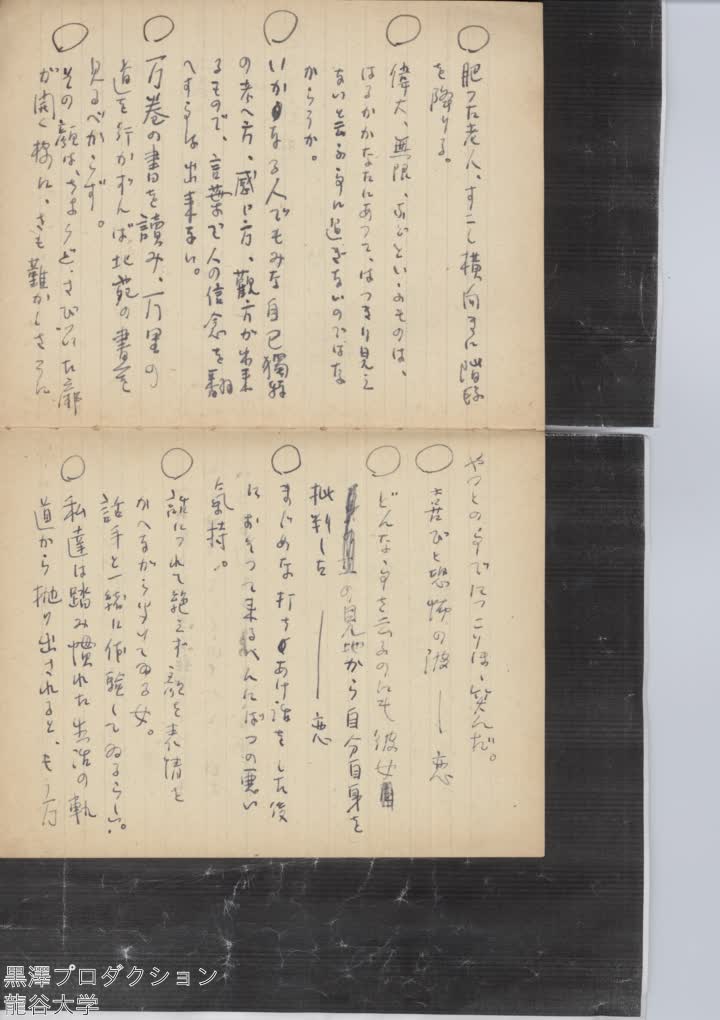 ○ 肥つた老人、すこし横向きに階段
を降りる。
○ 偉大、無限、などといふものは、
はるかかなたにあつて、はつきり見え
ないと云ふ事に過ぎないのではな
からうか。
○ いかなる人でもみな自己獨特
の考へ方、感じ方、觀方が出来
るもので、言葉で人の信念を翻
へすことは出来ない。
○ 万巻の書を讀み、万里の
道を行かずんば
見るべからず。
○ その顔は、ちようど、さびついた扉
が開く様に、さも難かしさうに
やつとの事でにつこりほゝ笑んだ。
○ 喜びと恐怖の波──恋
○ どんな事を云ふのにも彼女
の見地から自分自身を
批判した──恋
○ まじめな打ちあけ話をした後
におそつて来るへんにばつの悪い
氣持。
○ 話につれて絶えず顔を表情を
かへながら歩いてゐる女。
話手と一緒に体験してゐるらしい。
○ 私達は踏み慣れた生活の軌
道から抛り出されると、もう万
黒澤プロダクション
龍谷大学